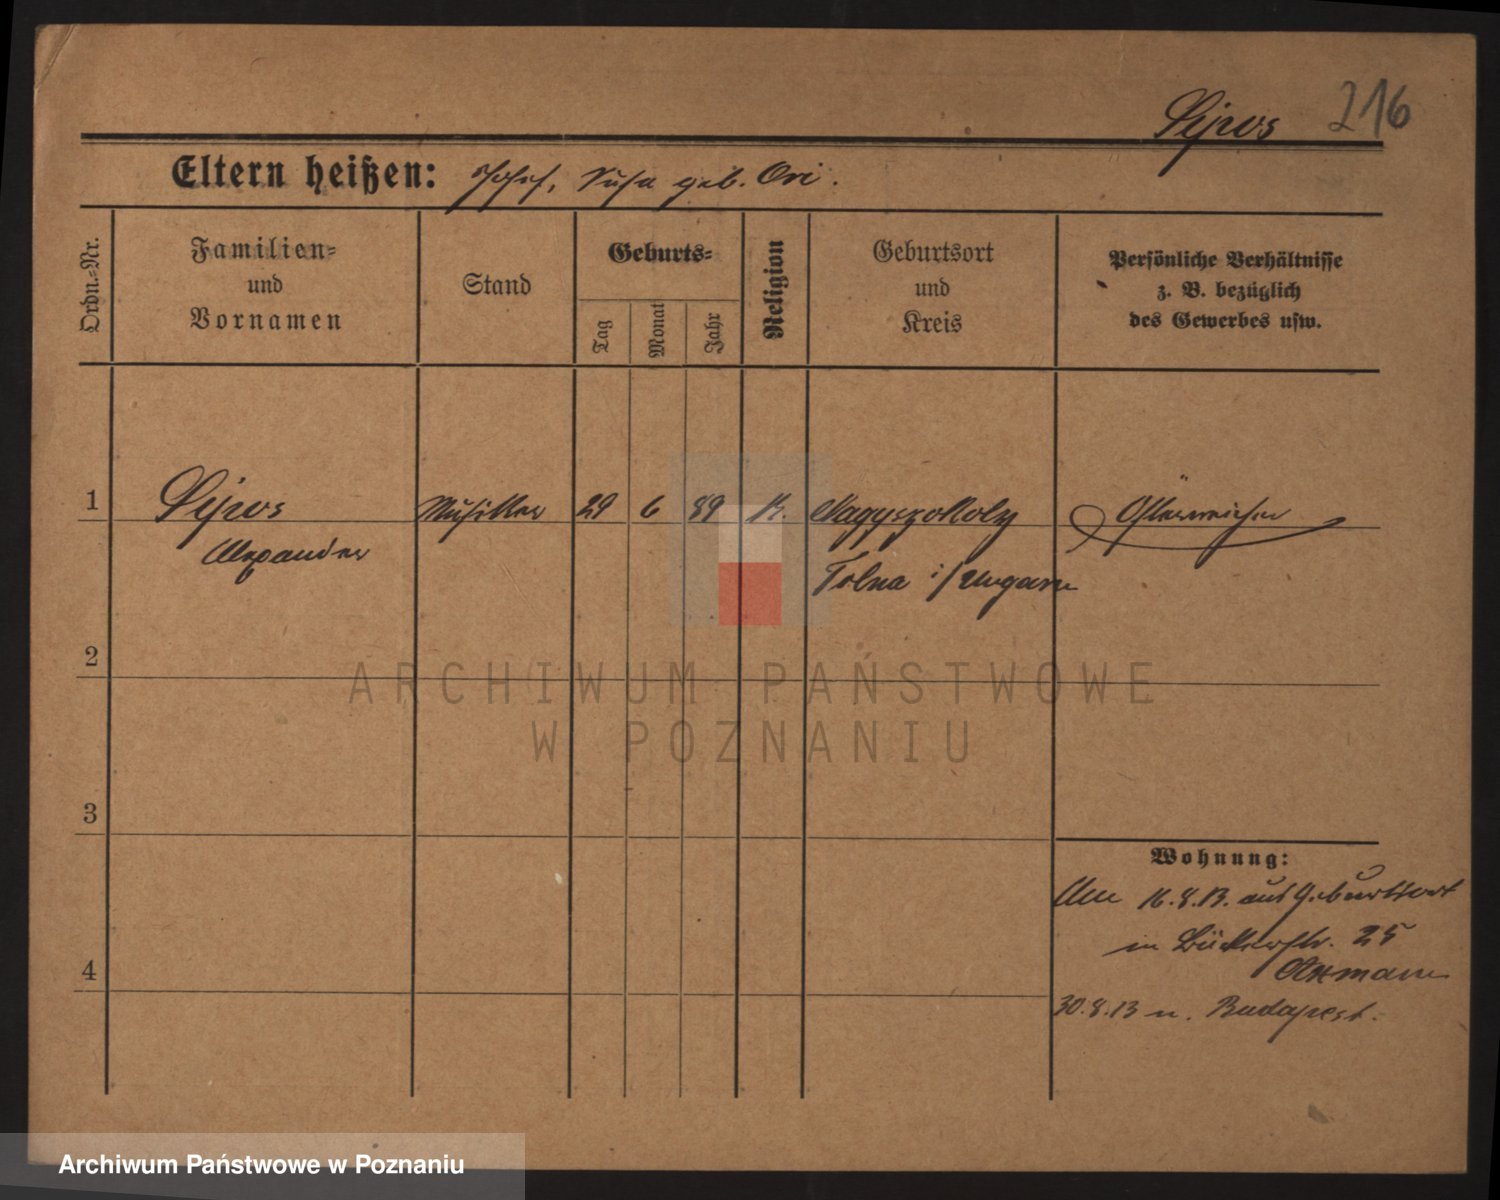 216
Sijros
Eltern heißen: Josef, Susa geb. Ori.
Ordn.-Nr.
Familien-
und
Vornamen
Stand
Geburts-
Tag
Monat
Jahr
Religion
Geburtsort
und
Kreis
Persönliche Verhältnisse
z. B. bezüglich
des Gewerbes usw.
1 Sijros Musiker 29 6 89 K. Nagyszokoly Österreicher
Alexander Tolna i/Ungarn
2
ARCHIWUM PAŃSTWOWE
W POZNANIU
3
Wohnung:
16.8.13. aus Geburtsort
in Bäckerstr. 25
4
30.8.13 n. Budapest.
Archiwum Państwowe w Poznaniu